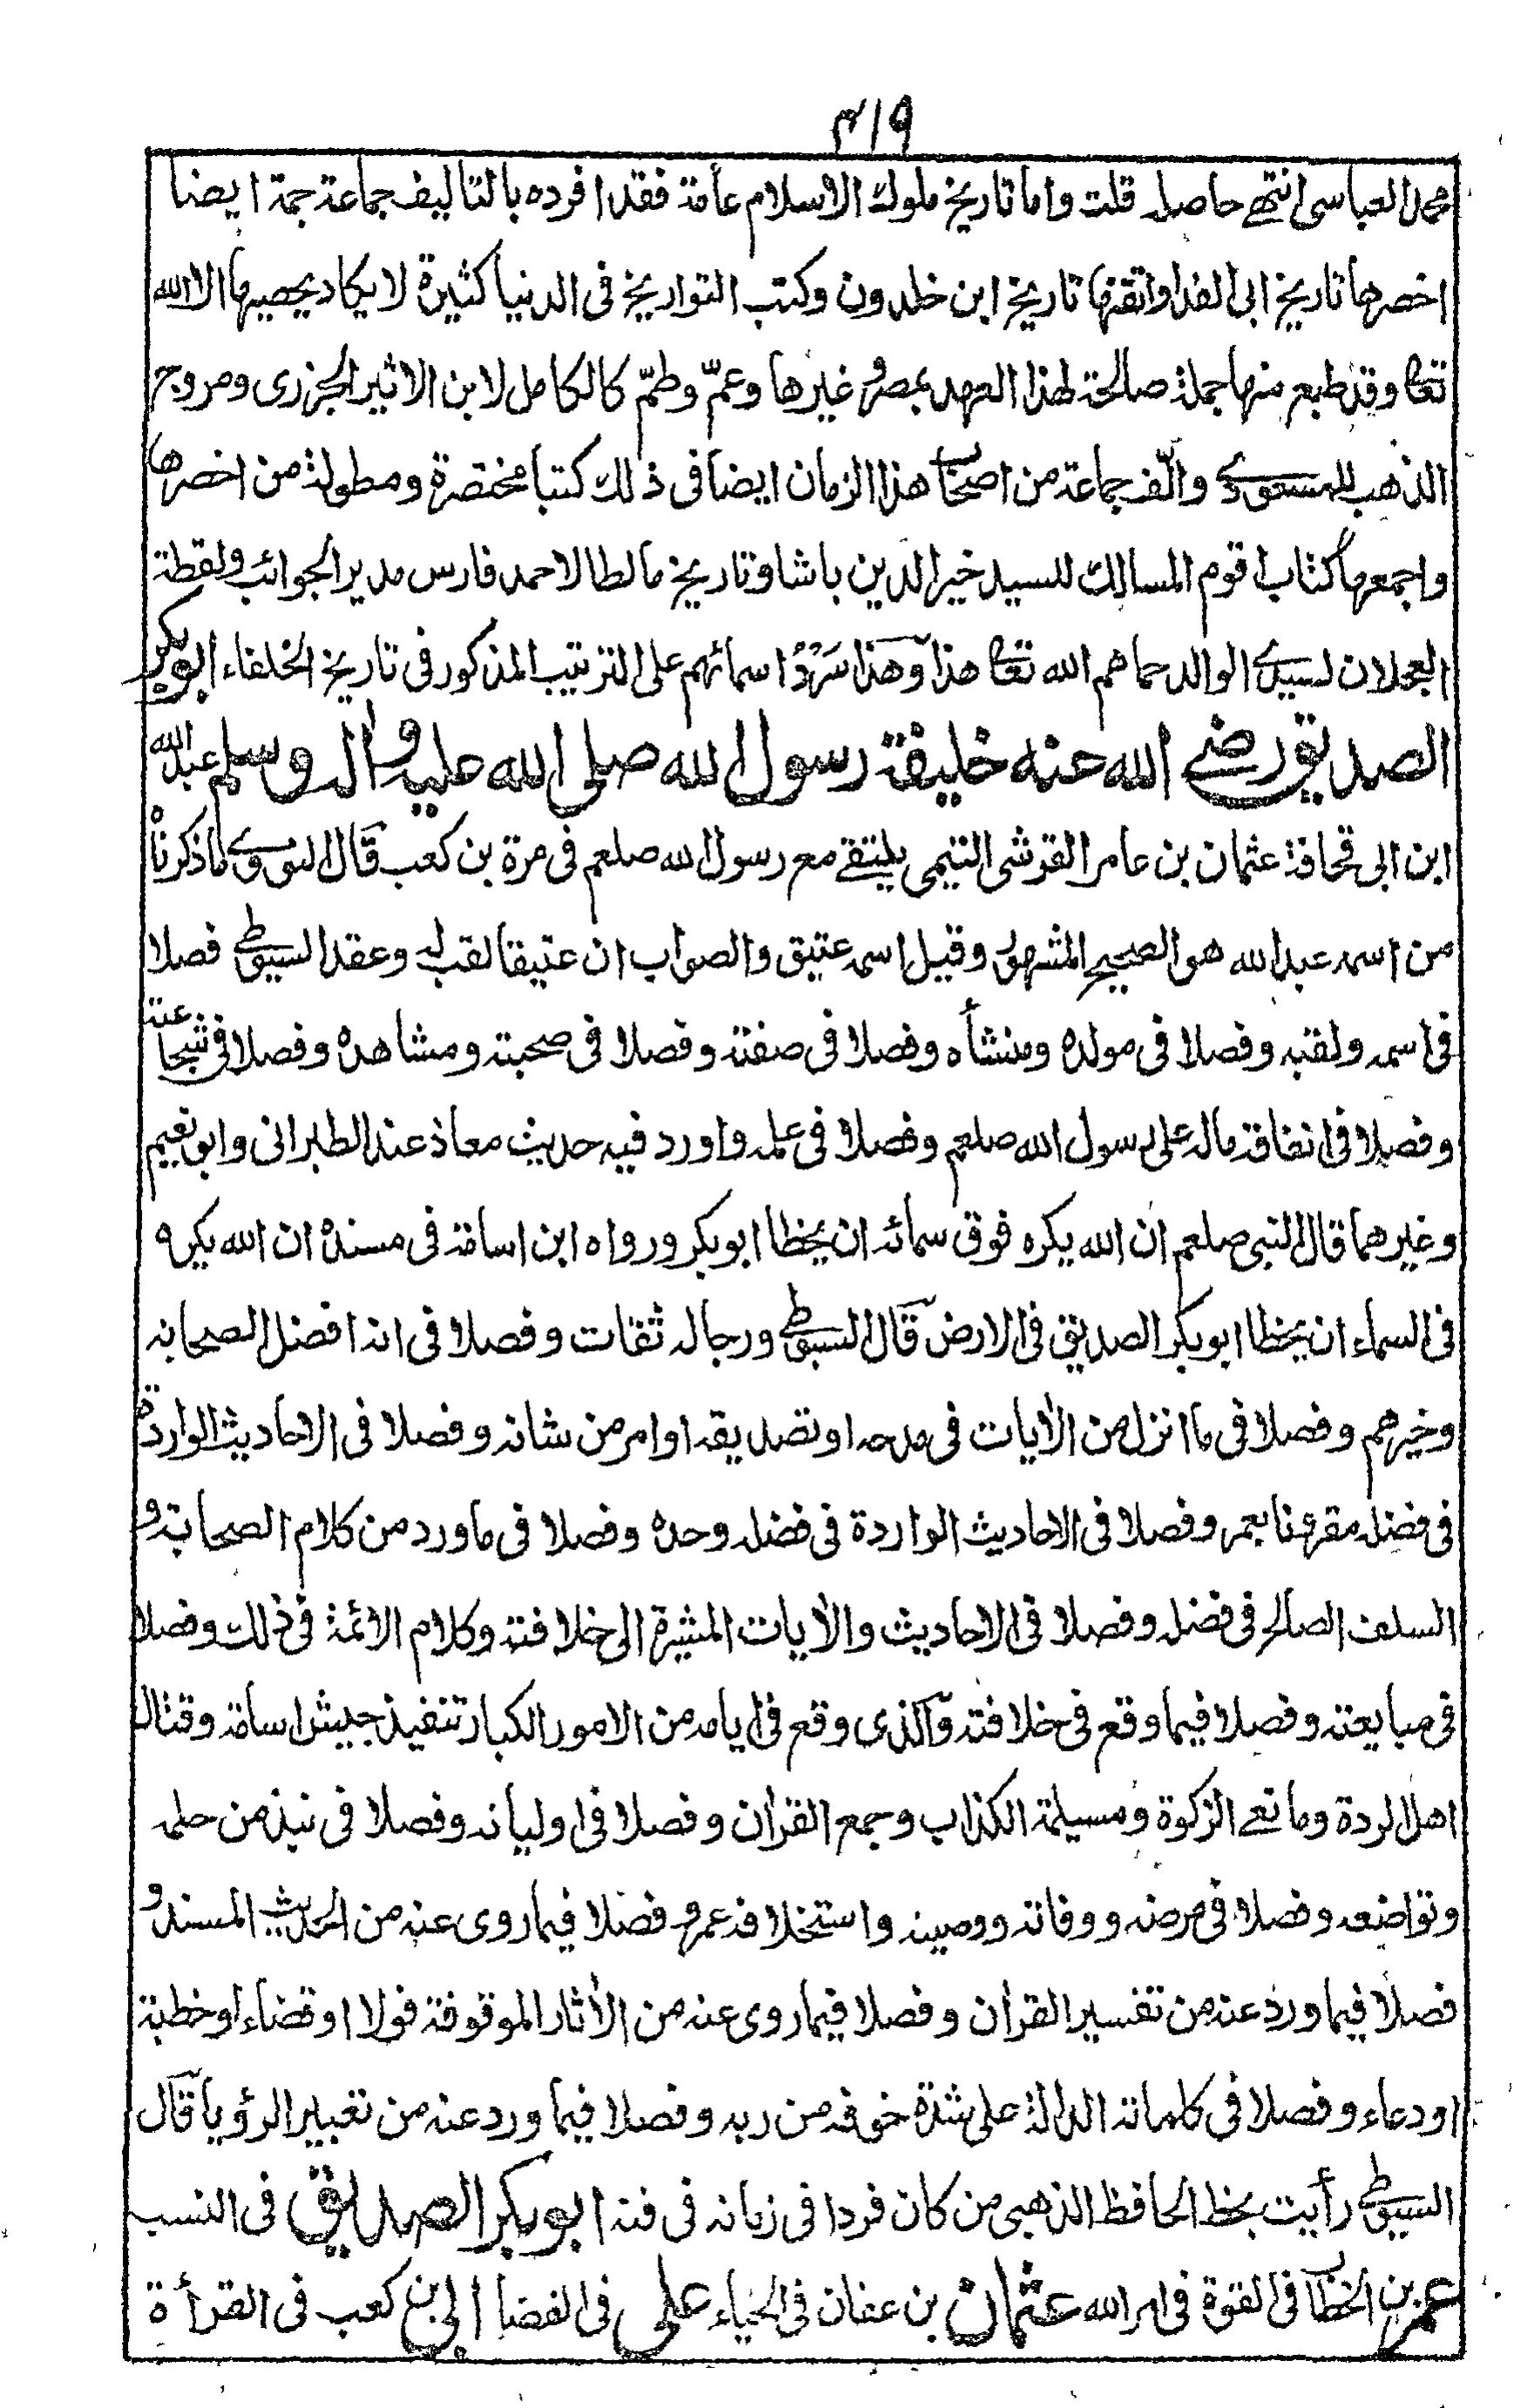 ٤١٩
محمد العباسى انتهى حاصله قلت واما تاريخ ملوك الاسلام عامة فقد افرده بالتاليف جماعة جمة ايضا
اخصرها تاريخ ابى الفدا واتقنها تاريخ ابن خلدون وكتب التواريخ فى الدنيا كثيرة لا يكاد يحصيها الا الله
تعا وقد طبع منها جملة صالحة لهذا العهد بمصر وغيرها وعمّ وطمّ كالكامل لابن الاثير الجزرى ومروج
الذهب للمسعودى والّف جماعة من اصحاب هذا الزمان ايضا فى ذلك كتبا مختصرة ومطولة من اخصرها
واجمعها كتاب اقوم المسالك للسيد خير الدين باشا وتاريخ مالطا لاحمد فارس مدير الجوائب ولقطة
العجلان لسيدى الوالد حماهم الله تعا هذا وهذا سَرْدُ اسمائهم على الترتيب المذكور فى تاريخ الخلفاء ابو بكر
الصديق رضى الله عنه خليفة رسول الله صلى الله عليه واله وسلم عبد الله
ابن ابى قحافة عثمان بن عامر القرشى التيمى يلتقى مع رسول الله صلعم فى مرة بن كعب قال النووى ما ذكرناه
من اسمه عبد الله هو الصحيح المشهور وقيل اسمه عتيق والصواب ان عتيقا لقب له وعقد السيوطى فصلا
فى اسمه ولقبه وفصلا فى مولده ومنشأه وفصلا فى صفته وفصلا فى صحبته ومشاهده وفصلا فى شجاعته
وفصلا فى انفاقه ماله على رسول الله صلعم وفصلا فى علمه واورد فيه حديث معاذ عند الطبرانى وابو نعيم
وغيرهما قال النبى صلعم ان الله يكره فوق سمائه ان يخطا ابو بكر ورواه ابن اسامة فى مسنده ان الله يكره
فى السماء ان يخطا ابو بكر الصديق فى الارض قال السيوطى ورجاله ثقات وفصلا فى انه افضل الصحابه
وخيرهم وفصلا فى ما انزل من الأيات فى مدحه او تصديقه او امر من شانه وفصلا فى الاحاديث الواردة
فى فضله مقرونا بعمر وفصلا فى الاحاديث الواردة فى فضله وحده وفصلا فى ما ورد من كلام الصحابة و
السلف الصالح فى فضله وفصلا فى الاحاديث والأيات المشيرة الى خلافته وكلام الائمة فى ذلك وفصلا
فى مبايعته وفصلا فيما وقع فى خلافته والذى وقع فى ايامه من الامور الكبار تنفيذ جيش اسامة وقتال
اهل الردة ومانعى الزكوة ومسيلمة الكذاب وجمع القرأن وفصلا فى اولياته وفصلا فى نبذ من حلمه
وتواضعه وفصلا فى مرضه ووفاته ووصيته واستخلافه عمر وفصلا فيما روى عنه من الحديث المسند و
فصلا فيما ورد عنه من تفسير القرأن وفصلا فيما روى عنه من الأثار الموقوفة قولا او قضاء او خطبة
او دعاء وفصلا فى كلماته الدالة على شدة خوفه من ربه وفصلا فيما ورد عنه من تعبير الرؤيا قال
السيوطى رأيت بخط الحافظ الذهبى من كان فردا فى زمانه فى فنه ابو بكر الصديق فى النسب
عمر بن الخطاب فى القوة فى امر الله عثمان بن عفان فى الحياء على فى القضا ابى بن كعب فى القرأة